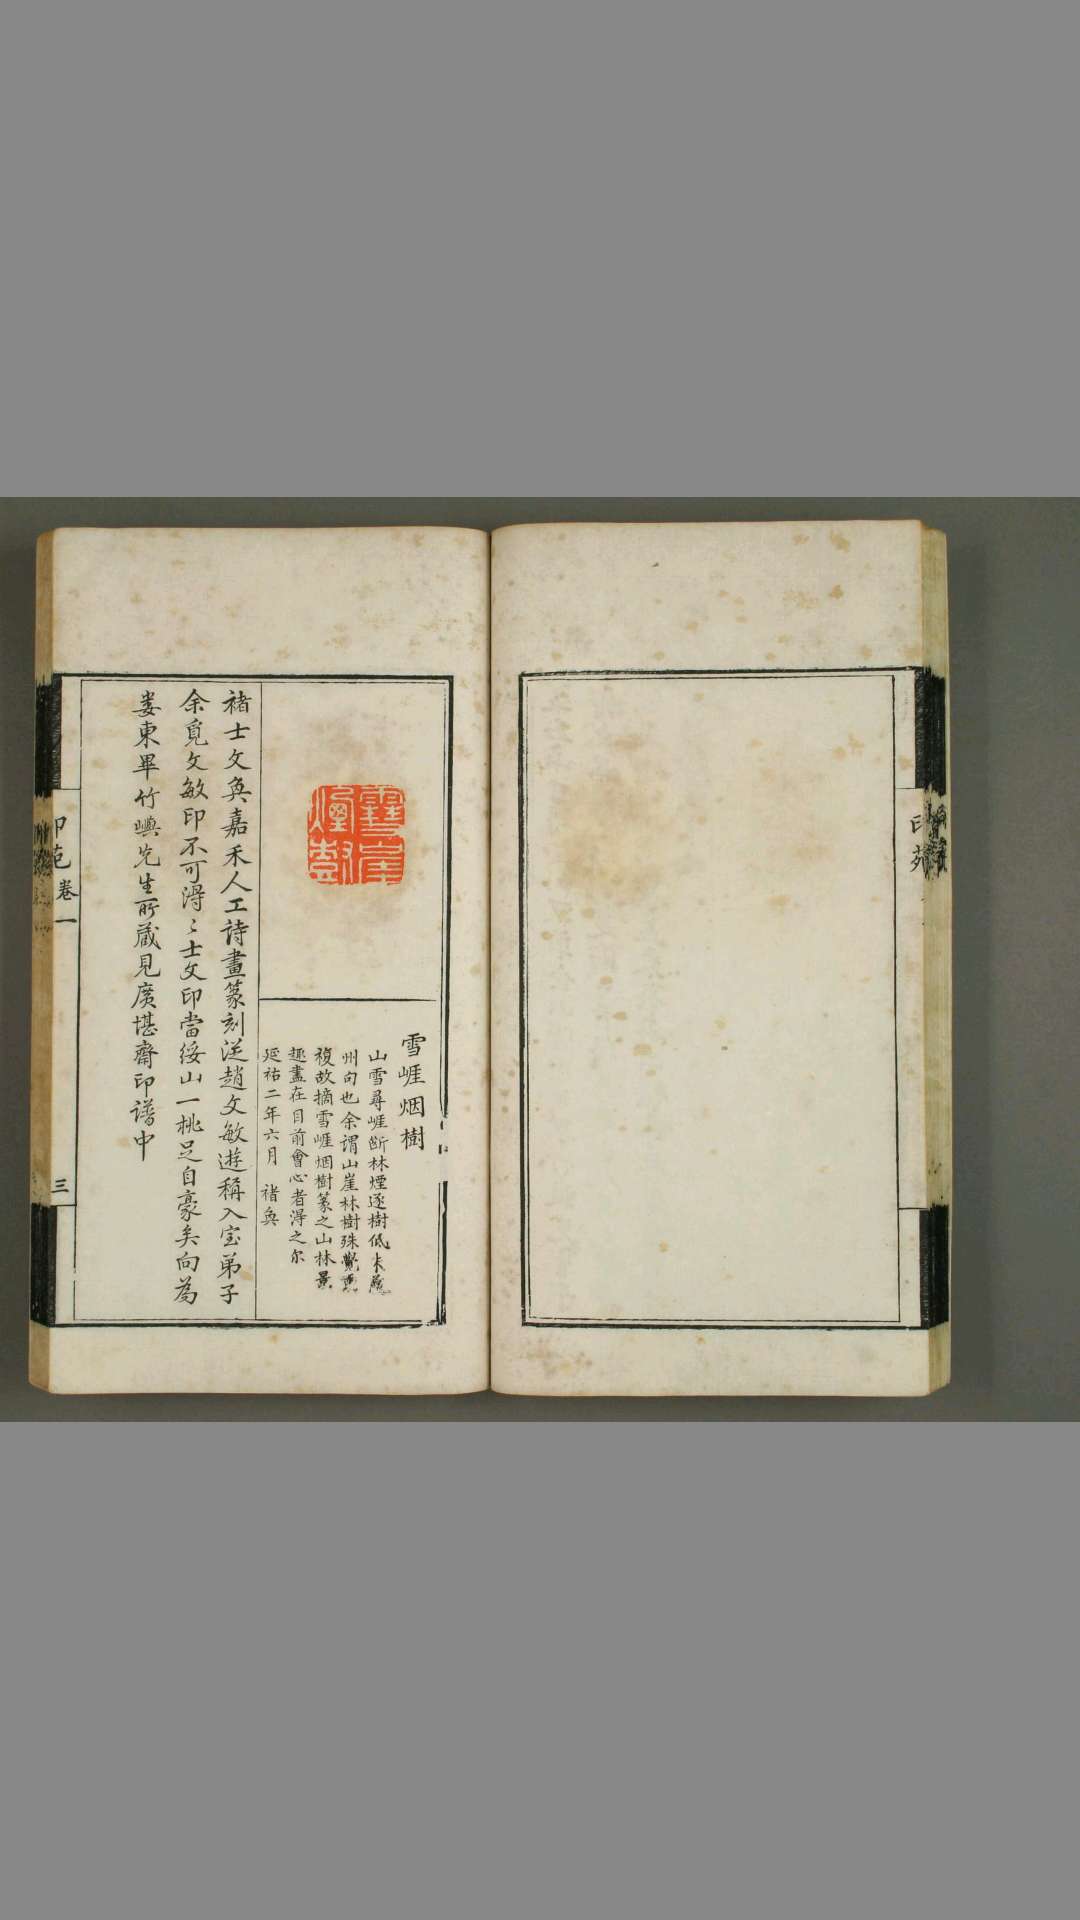 印苑
雪崕烟樹
山雪尋崕断林煙逐樹低
州句也余谓山崖林樹殊覺
複故摘雪崕烟樹篆之山林景
趣盡在目前會心者淂之尔
延祐二年六月 褚奐
褚士文奐嘉禾人工詩畫篆刻従趙文敏遊稱入室弟子
余覓文敏印不可淂〻士文印當綏山一桃足自豪矣向為
婁東畢竹嶼先生所蔵見廣堪齋印谱中
印苑 卷一
三